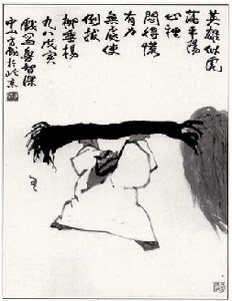 英雄似虎
落平陽
心裡
悶得慌
有力
無處使
倒拔
柳垂楊
九八戊寅
戲寫魯智深
於北京